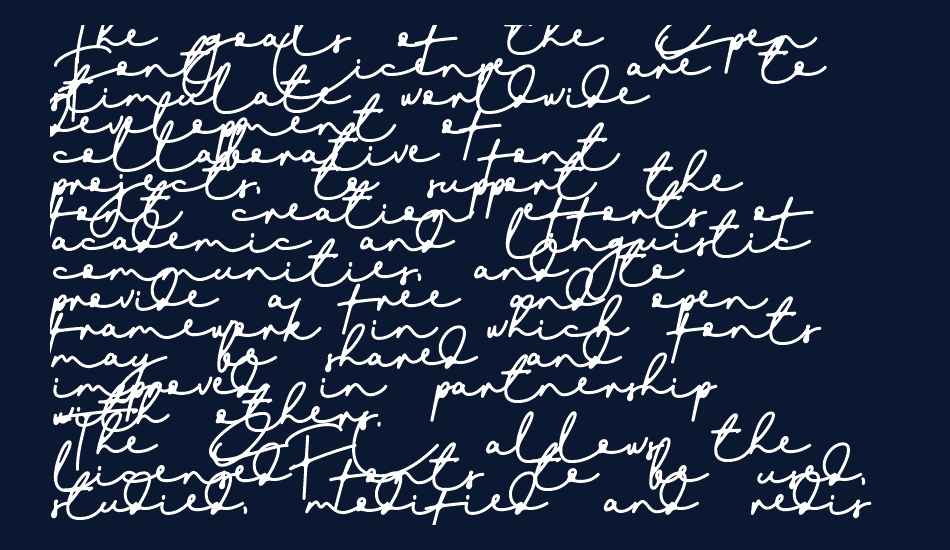 The goals of the Open
Font License are to
stimulate worldwide
development of
collaborative font
projects, to support the
font creation efforts of
academic and linguistic
communities, and to
provide a free and open
framework in which fonts
may be shared and
improved in partnership
with others.
The OFL allows the
licensed fonts to be used,
studied, modified and redis